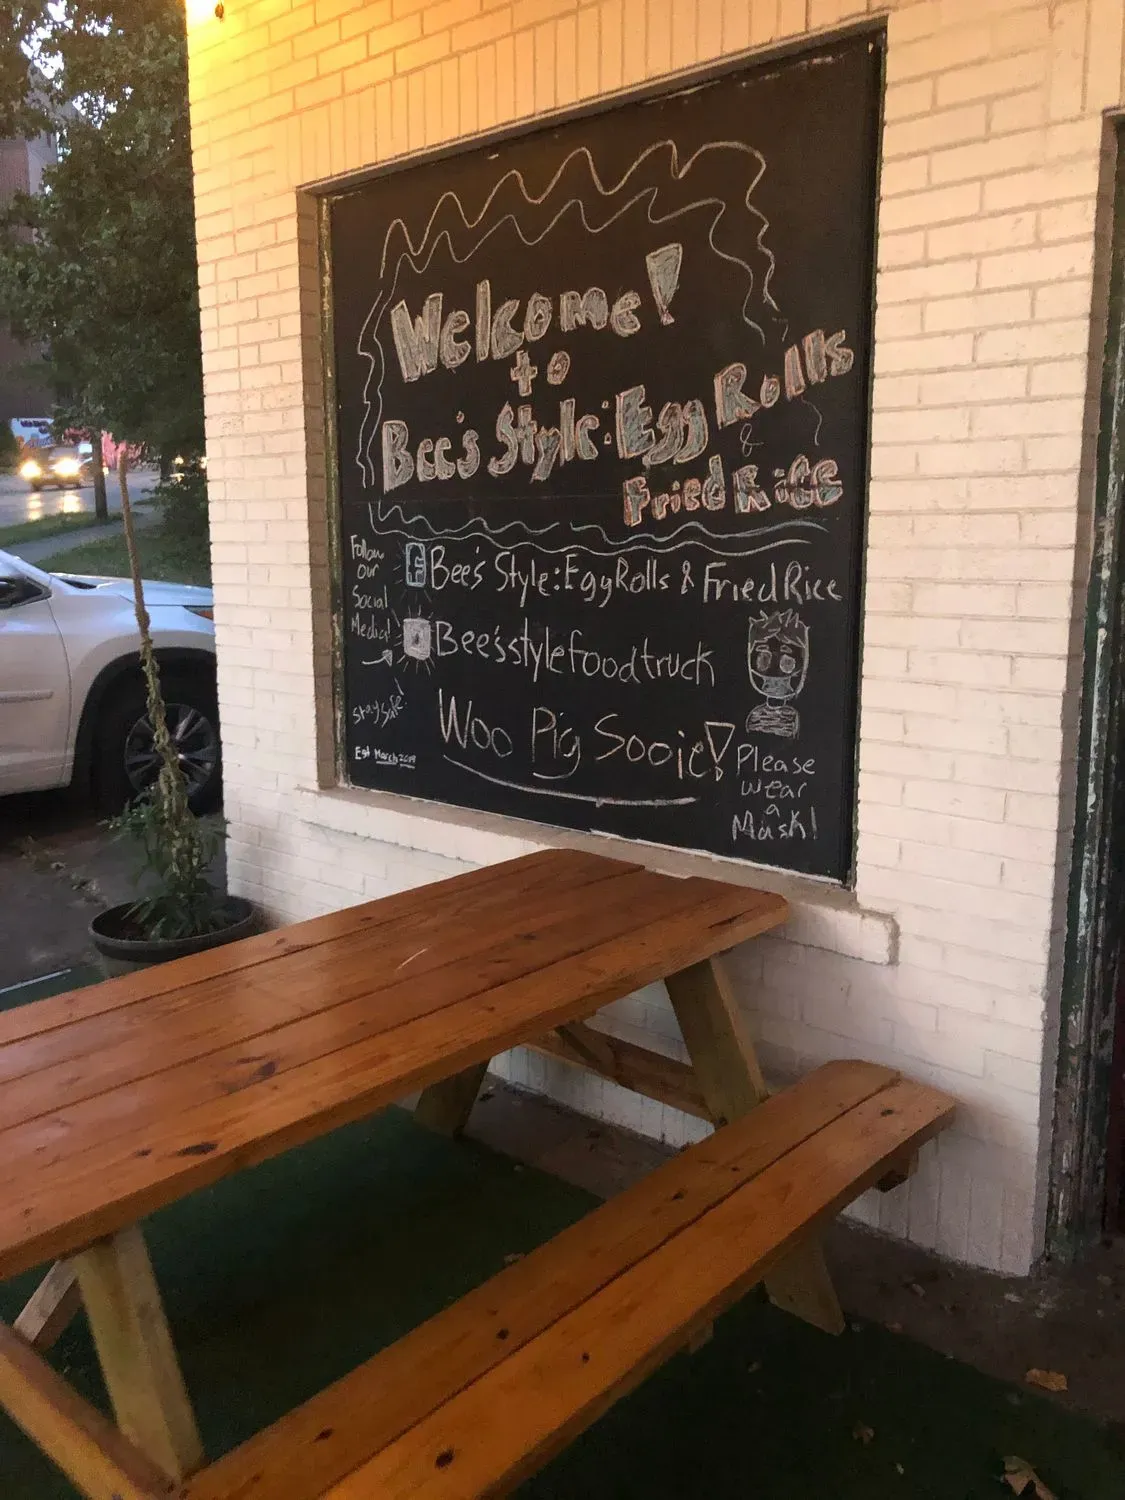 Welcome!
to
Bee's Style: Egg Rolls
&
Fried Rice
Follow
our
Social
Media!
f Bee's Style: Egg Rolls & Fried Rice
Bee'sstylefoodtruck
Stay Safe!
Woo Pig Sooie!
Est March 2019
Please
wear
a
Mask!